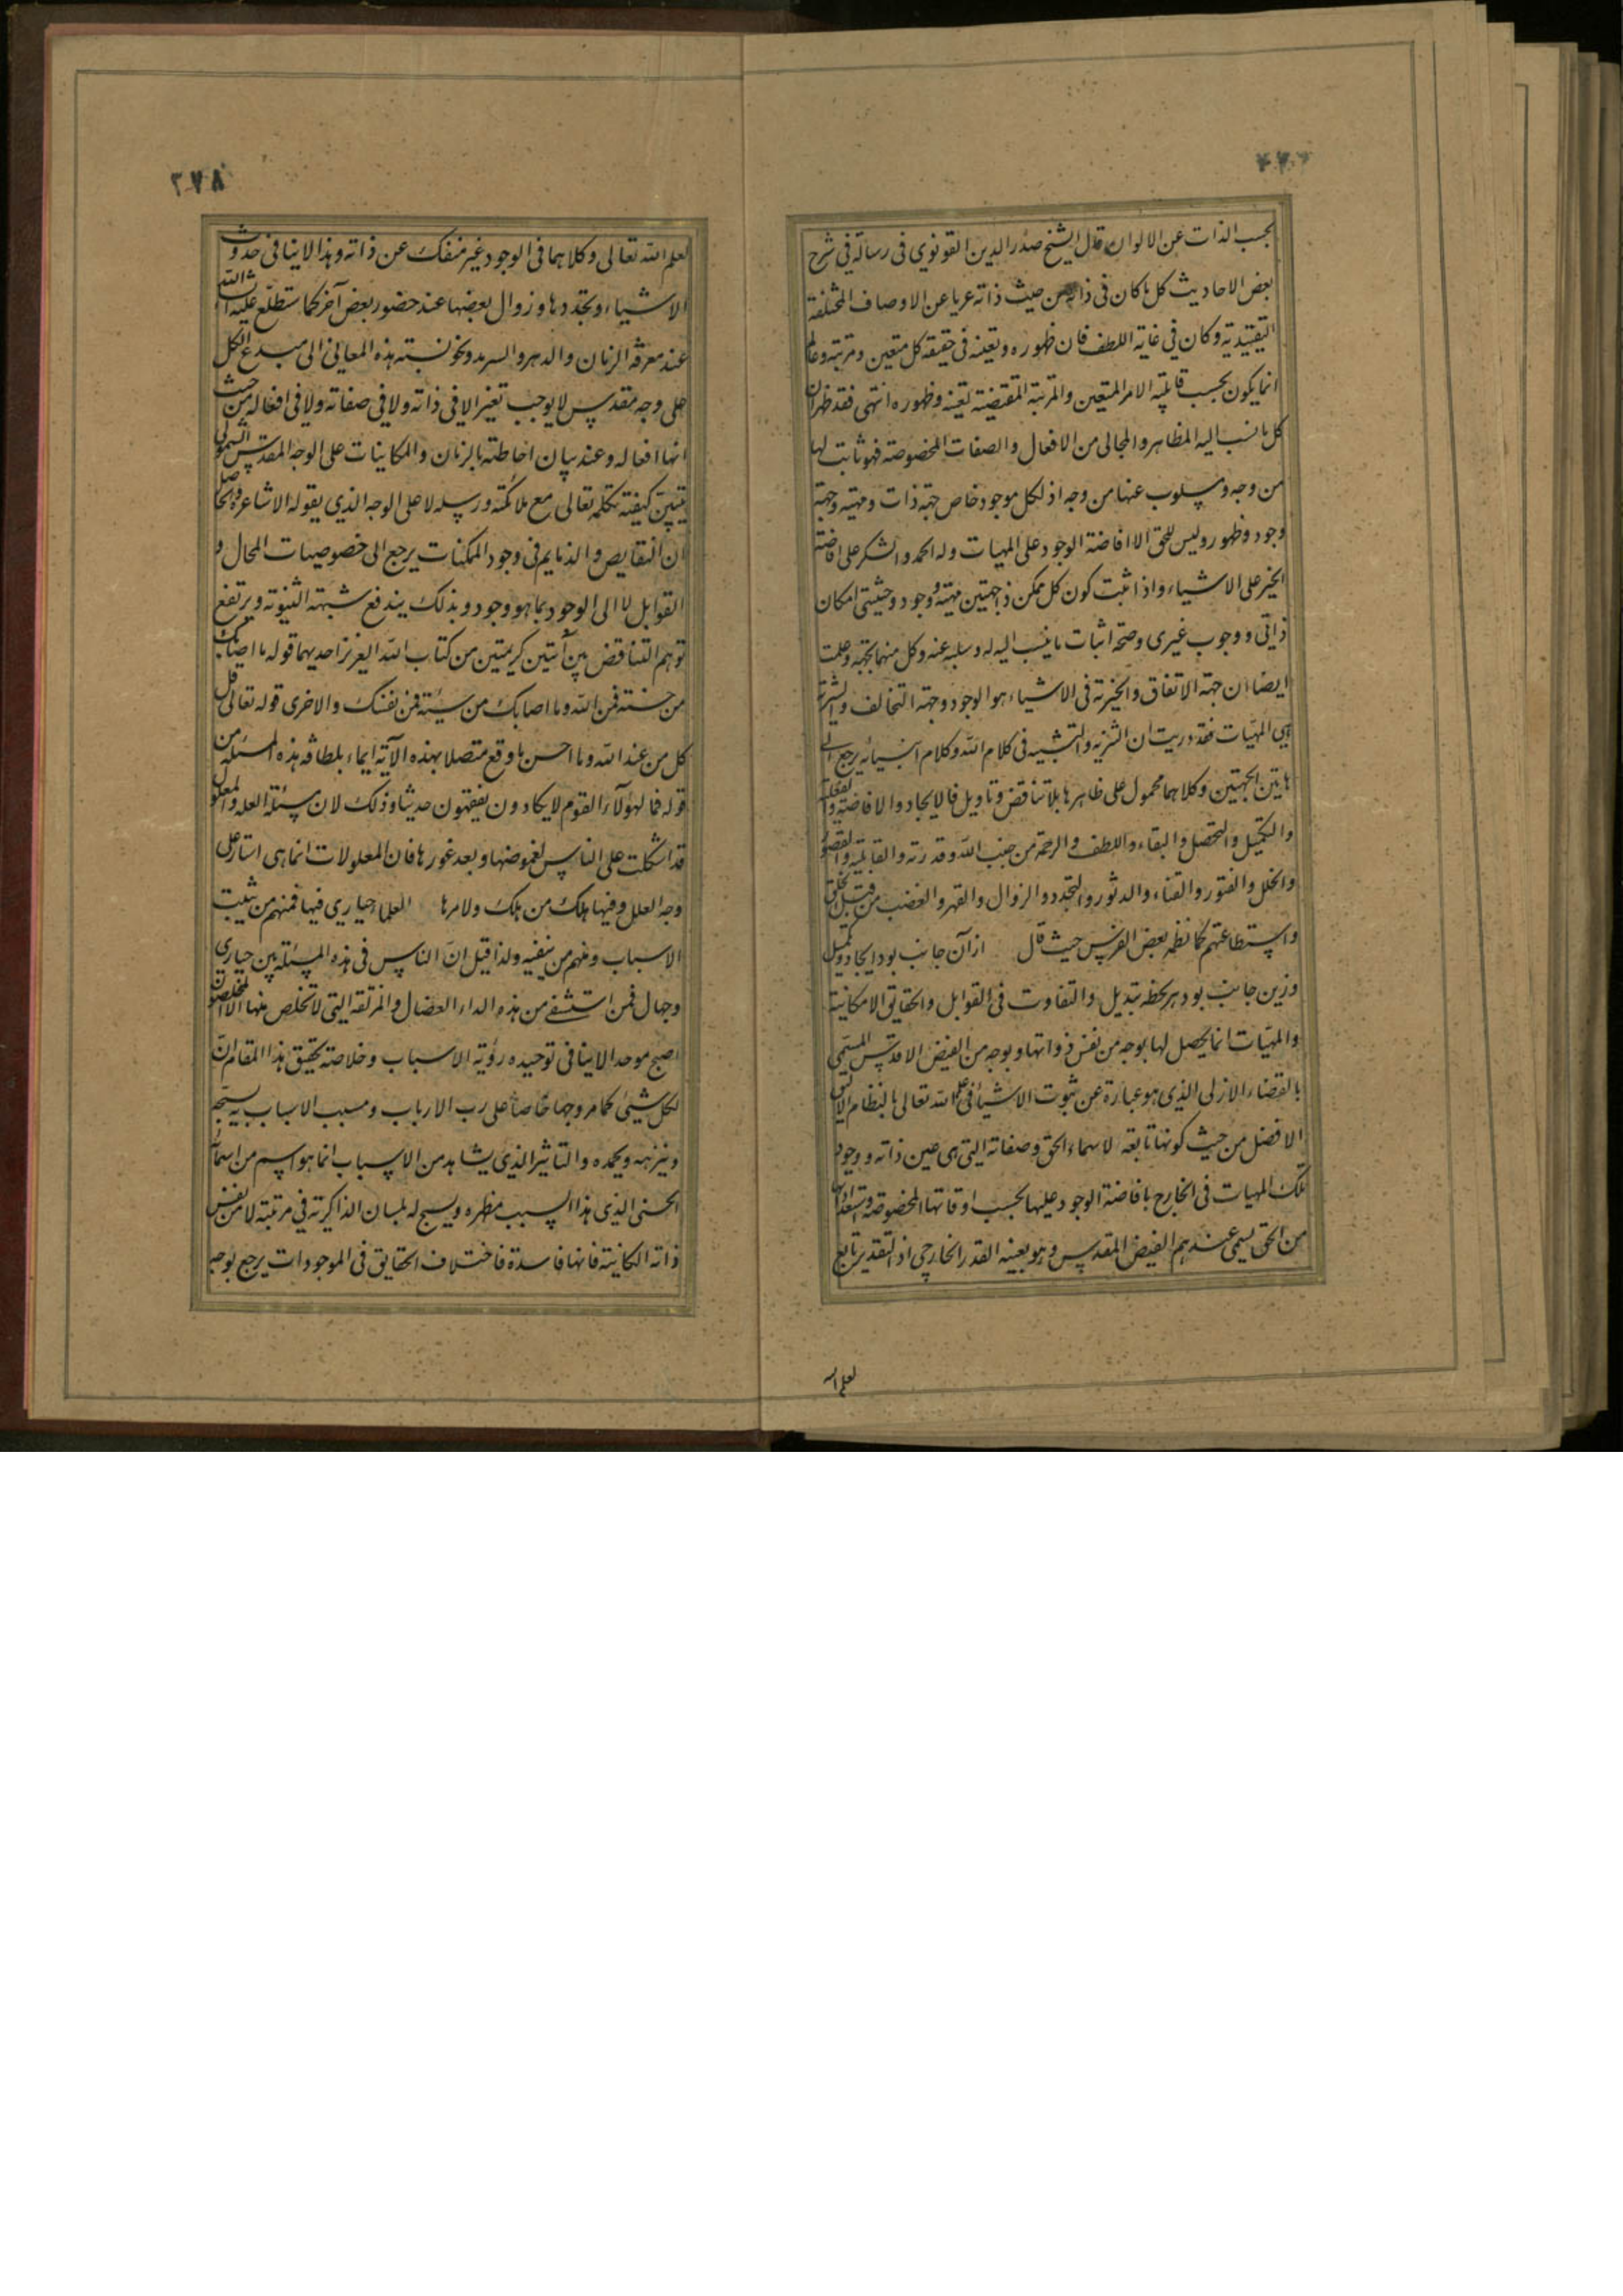 ٢٧٧
بحسب الذات عن الالوان قال الشيخ صدر الدين القونوي فى رسالة فى شرح
بعض الاحاديث كل ما كان فى ذاته من حيث ذاته عريا عن الاوصاف المختلفة
التقييدية وكان فى غاية اللطف فان ظهوره وتعينه فى حقيقة كل متعين ومرتبة وعالم
انما يكون بحسب قابلية الامر المتعين والمرتبة المقتضية تعينه وظهوره انتهى فقد ظهر ان
كل ما نسب اليه المظاهر والمجالى من الافعال والصفات المخصوصة فهو ثابت لها
من وجه ومسلوب عنها من وجه اذ لكل موجود خاص جهة ذات ومهية وجهة
وجود وظهور وليس للحق الا افاضة الوجود على المهيات وله الحمد والشكر على افاضة
الخير على الاشياء واذا ثبت كون كل ممكن ذا جهتين مهية ووجود وحيثيتى امكان
ذاتى ووجوب غيرى وصحة اثبات ما ينسب اليه له وسلبه عنه وكل منهما بجهة وعلمت
ايضا ان جهة الاتفاق والخيرية فى الاشياء هو الوجود وجهة التخالف والشرية
هى المهيات فقد دريت ان التنزيه والتشبيه فى كلام الله وكلام انبيائه يرجع الى
هاتين الجهتين وكلاهما محمول على ظاهرها بلا تناقض وتاويل فالايجاد والافاضة والفعلية
والتكميل والتحصل والبقاء واللطف والرحمة من جنب الله وقدرته والقابلية والقصور
والخلل والفتور والفناء والدثور والتجدد والزوال والقهر والغضب من قبل الخلق
واستطاعتهم كما نظمه بعض الفرس حيث قال ازآن جانب بود ايجاد وتكميل
وزين جانب بود هر لحظه تبديل والتفاوت فى القوابل والحقايق الامكانية
والمهيات انما يحصل لها بوجه من نفس ذواتها وبوجه من الفيض الاقدس المسمى
بالقضاء الازلى الذى هو عبارة عن ثبوت الاشياء فى علم الله تعالى بالنظام الاليق
الافضل من حيث كونها تابعة لاسماء الحق وصفاته التى هى عين ذاته ووجود
تلك المهيات فى الخارج بافاضة الوجود عليها بحسب اوقاتها المخصوصة واستعداداتها
من الحق يسمى عندهم الفيض المقدس وهو بعينه القدر الخارجى اذ التقدير تابع
لعلم الله
٢٧٨
لعلم الله تعالى وكلاهما فى الوجود غير منفك عن ذاته وهذا لا ينافى حدوث
الاشياء وتجددها وزوال بعضها عند حضور بعض آخر كما ستطلع عليه ان شاء الله
عند معرفة الزمان والدهر والسرمد ونحو نسبته هذه المعانى الى مبدع الكل
على وجه مقدس لا يوجب تغيرا لا فى ذاته ولا فى صفاته ولا فى افعاله من حيث
انها افعاله وعند بيان احاطته بالزمان والمكانيات على الوجه المقدس الشمولى
يتبين كيفية تكلمه تعالى مع ملائكته ورسله لا على الوجه الذي يقوله الاشاعرة والحاصل
ان النقايص والذمايم فى وجود الممكنات يرجع الى خصوصيات المحال و
القوابل لا الى الوجود بما هو وجود وبذلك يندفع شبهة الثنوية ويرتفع
توهم التناقض بين آيتين كريمتين من كتاب الله العزيز احديهما قوله ما اصابك
من حسنة فمن الله وما اصابك من سيئة فمن نفسك والاخرى قوله تعالى قل
كل من عند الله وما احسن ما وقع متصلا بهذه الآية ايماء بلطافة هذه المسئلة من
قوله فما لهؤلاء القوم لا يكادون يفقهون حديثا وذلك لان مسئلة العلة والمعلول
قد اشكلت على الناس لغموضها وبعد غورها فان المعلولات انما هى استار على
وجه العلل وفيها هلك من هلك ولامرها العلماء حيارى فيها فمنهم من يثبت
الاسباب ومنهم من ينفيه ولذا قيل ان الناس فى هذه المسئلة بين حيارى
وجهال فمن استشفى من هذه الداء العضال والمزلقة التى لا تخلص منها الا المخلصون
اصبح موحدا لا ينافى توحيده رؤية الاسباب وخلاصة تحقيق هذا المقام ان
لكل شيئ كما مر وجها خاصا على رب الارباب ومسبب الاسباب به يسبحه
وينزهه ويحمده والتاثير الذي يشاهد من الاسباب انما هو اسم من اسماء
الحسنى الذى هذا السبب مظهره ويسبح له بلسان الذاكرية فى مرتبة لا من نفس
ذاته الكاينة فانها فاسدة فاختلاف الحقايق فى الموجودات يرجع بوجه